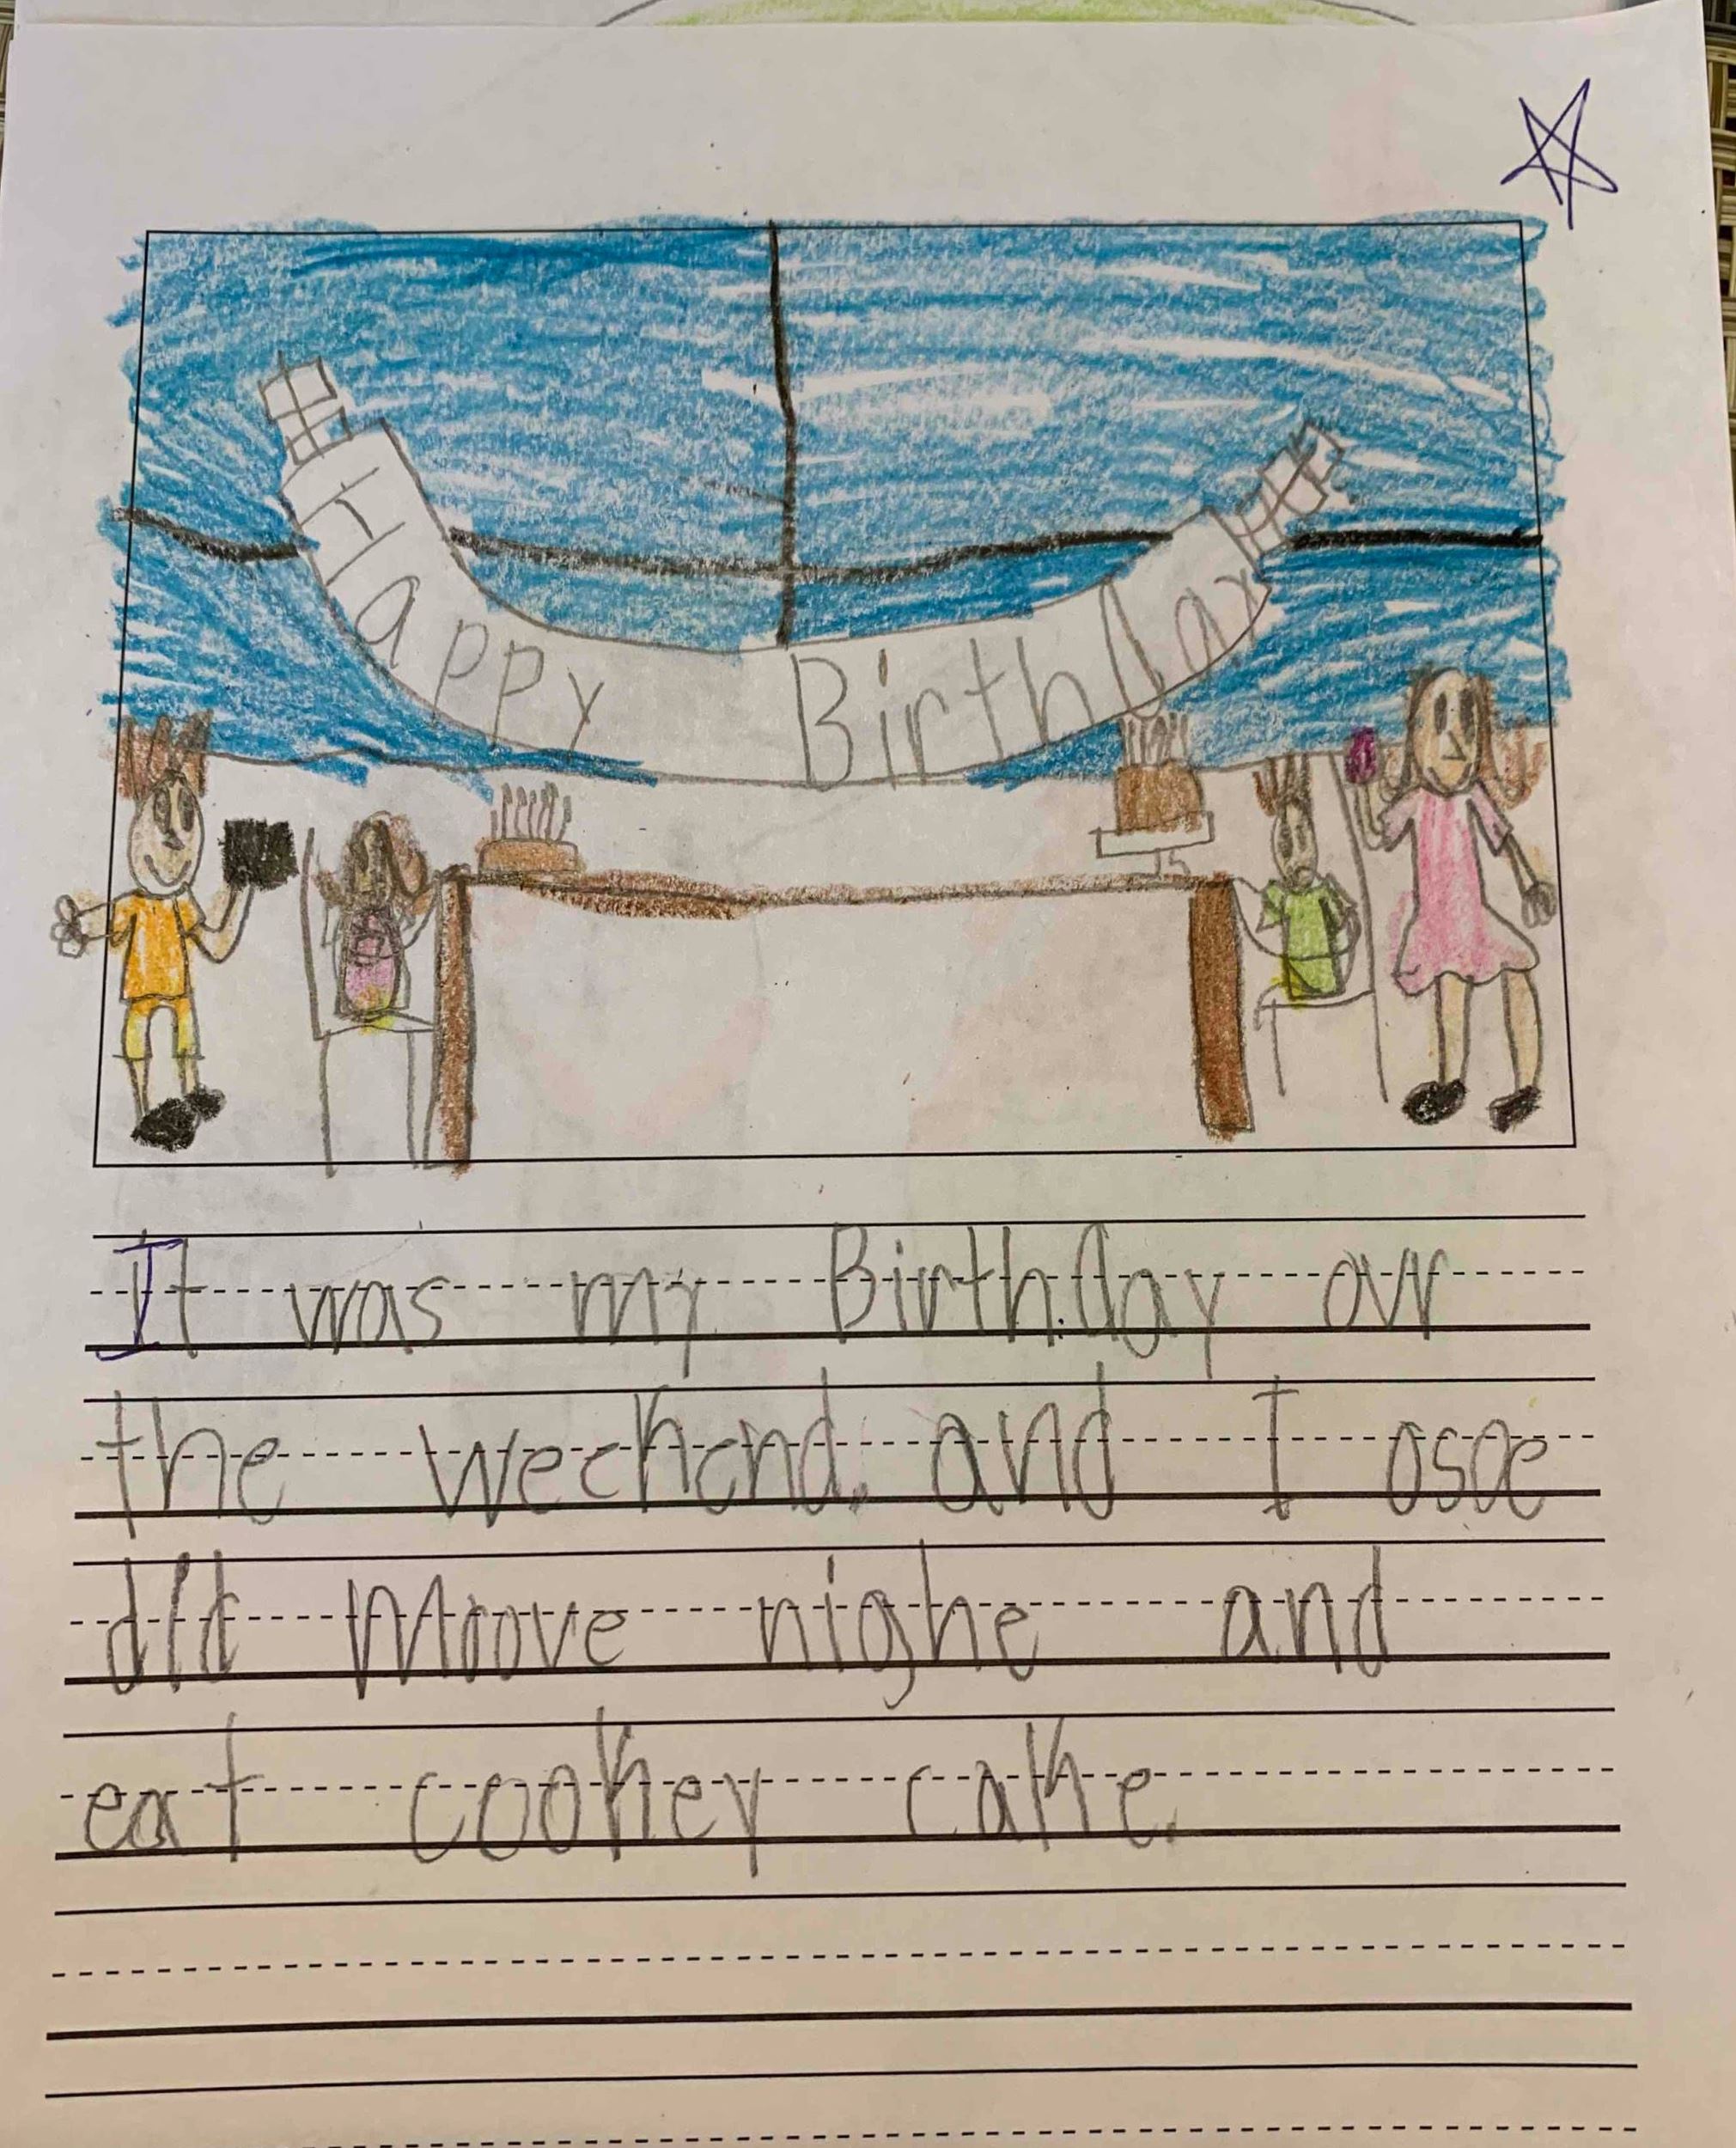 Happy Birthday
It was my Birthday ovr
the weekend. and I osoe
did Moove nighe and
eat cookey cake.